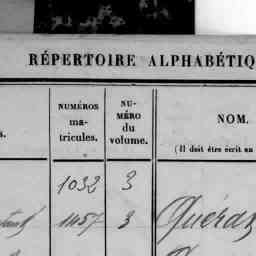 RÉPERTOIRE ALPHABÉTIQ
NUMÉROS
ma-
tricules.
NU-
MÉRO
du
volume.
NOM.
(Il doit être écrit en
s.
1032 3
1157 3